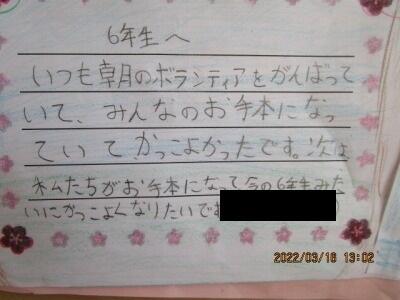 6年生へ
いつも朝のボランティアをがんばって
いて、みんなのお手本になっ
ていて、かっこよかったです。次は
私たちがお手本になって今の6年生みた
いにかっこよくなりたいです
2022/03/16 13:02